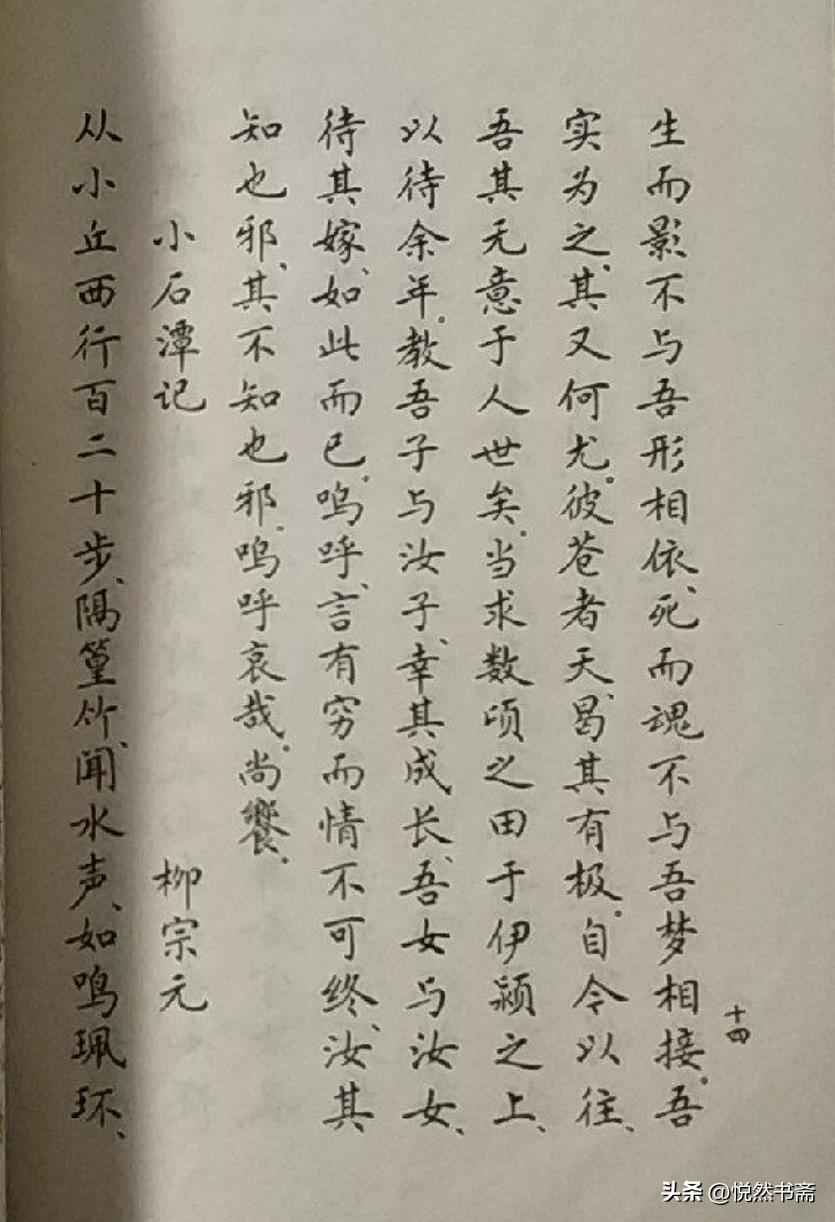 十四
生而影不与吾形相依、死而魂不与吾梦相接。吾
实为之、其又何尤。彼苍者天、曷其有极。自今以往、
吾其无意于人世矣。当求数顷之田于伊颍之上、
以待余年。教吾子与汝子、幸其成长、吾女与汝女、
待其嫁、如此而已。呜呼、言有穷而情不可终、汝其
知也邪、其不知也邪。呜呼哀哉。尚饗。
小石潭记 柳宗元
从小丘西行百二十步、隔篁竹、闻水声、如鸣珮环、
头条 @悦然书斋